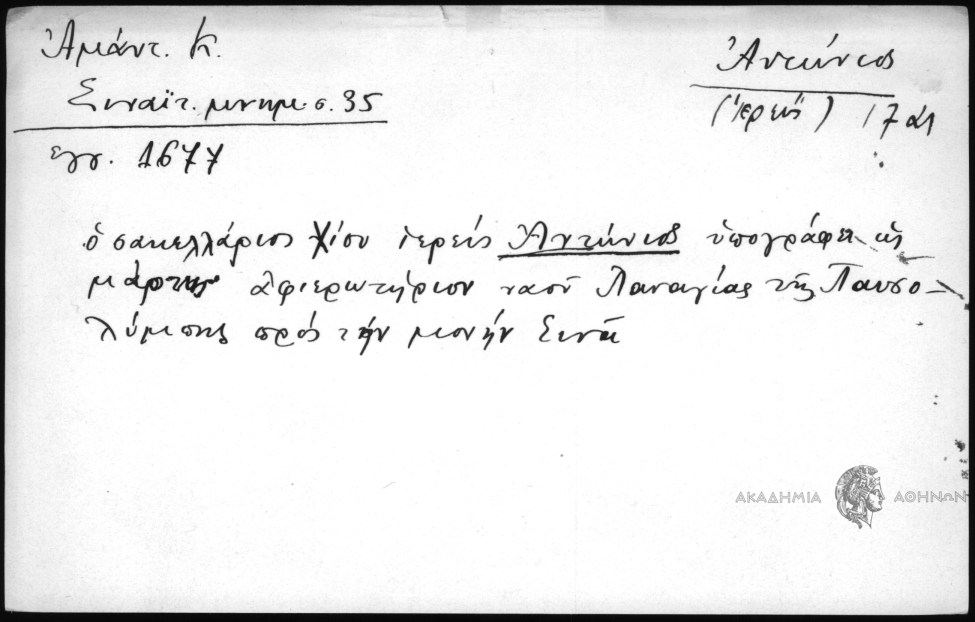 Ἀμάντ. Κ.
Σιναϊτ. μνημ. σ. 35
ἔγγ. 1677
Ἀντώνιος
(ἱερεύς) 17 αἰ
ὁ σακελλάριος Χίου ἱερεύς Ἀντώνιος ὑπογράφει ὡς
μάρτυς ἀφιερωτήριον ναοῦ Παναγίας τῆς Παυσο-
λύπης πρός τήν μονήν Σινᾶ
ΑΚΑΔΗΜΙΑ ΑΘΗΝΩΝ